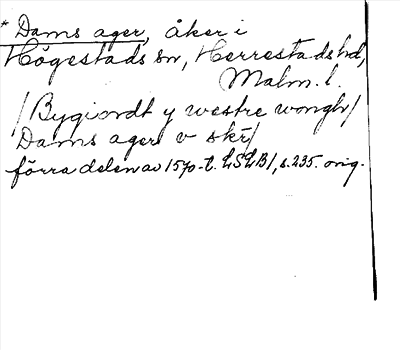 * Dams ager, åker i
Högestads sn, Herrestads hd,
Malm. l.
/Bygiordt y westre wongh/
Dams ager v skr/
förra delen av 1570-t. LSLB1, s. 235. orig.